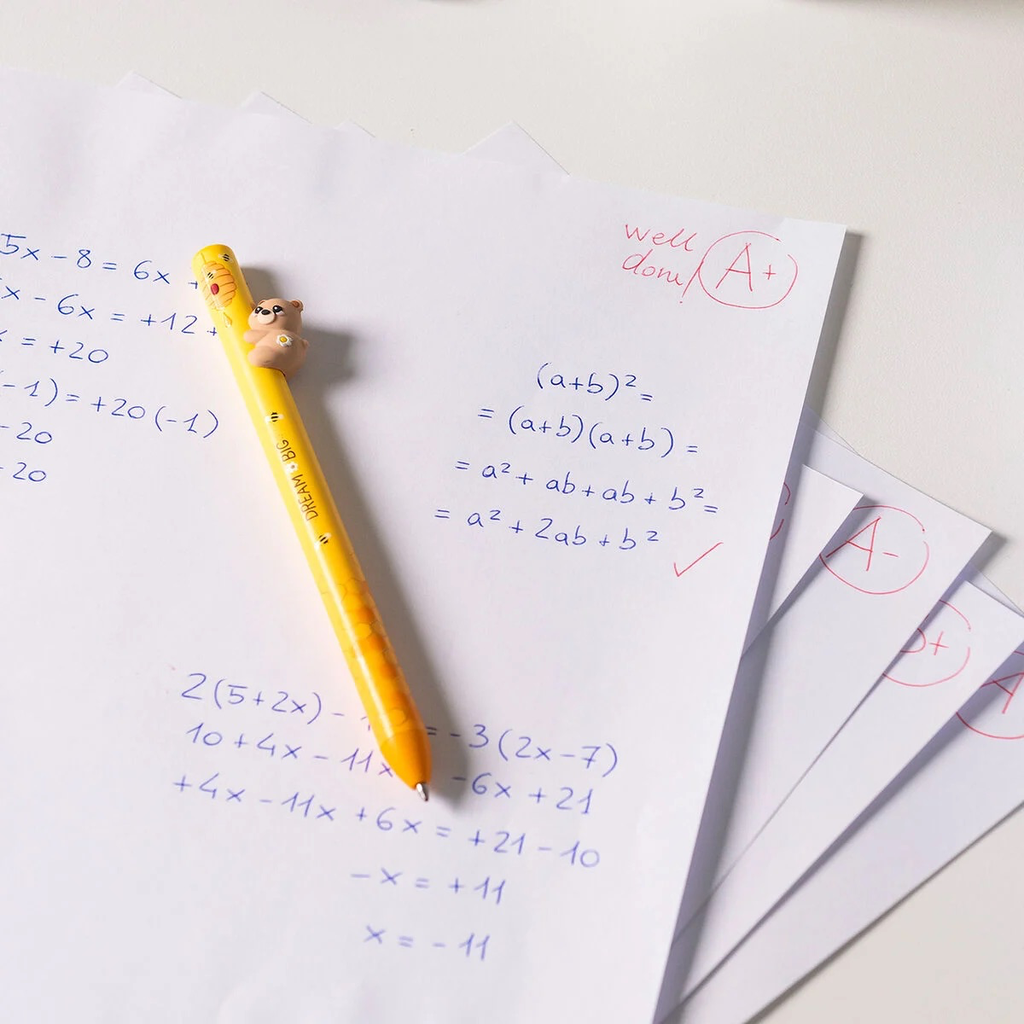 well
done!
A+
5x - 8 = 6x +
x - 6x = +12 +
x = +20
(-1) = +20 (-1)
-20
-20
DREAM BIG
(a+b)² =
= (a+b)(a+b) =
= a² + ab + ab + b² =
= a² + 2ab + b²
2(5+2x) - 1 = -3(2x-7)
10 + 4x - 11x -6x + 21
+4x - 11x + 6x = +21 - 10
-x = +11
x = -11
A-
+
A